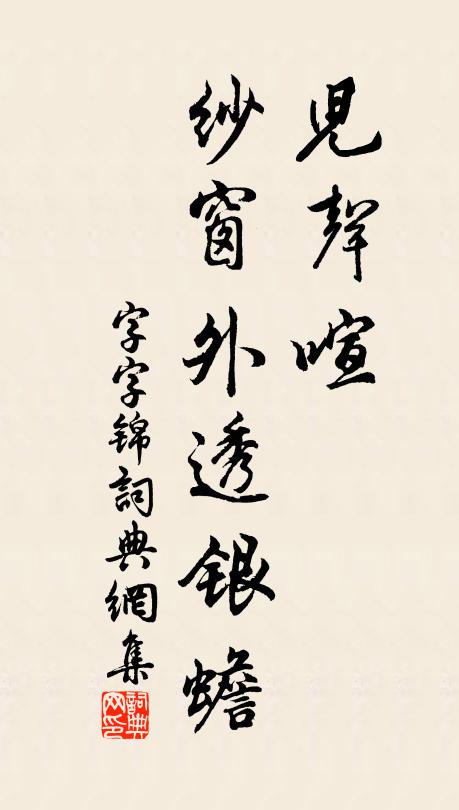 兒聲喧
紗窗外透銀蟾
字字錦詞典網集
詞典
网印